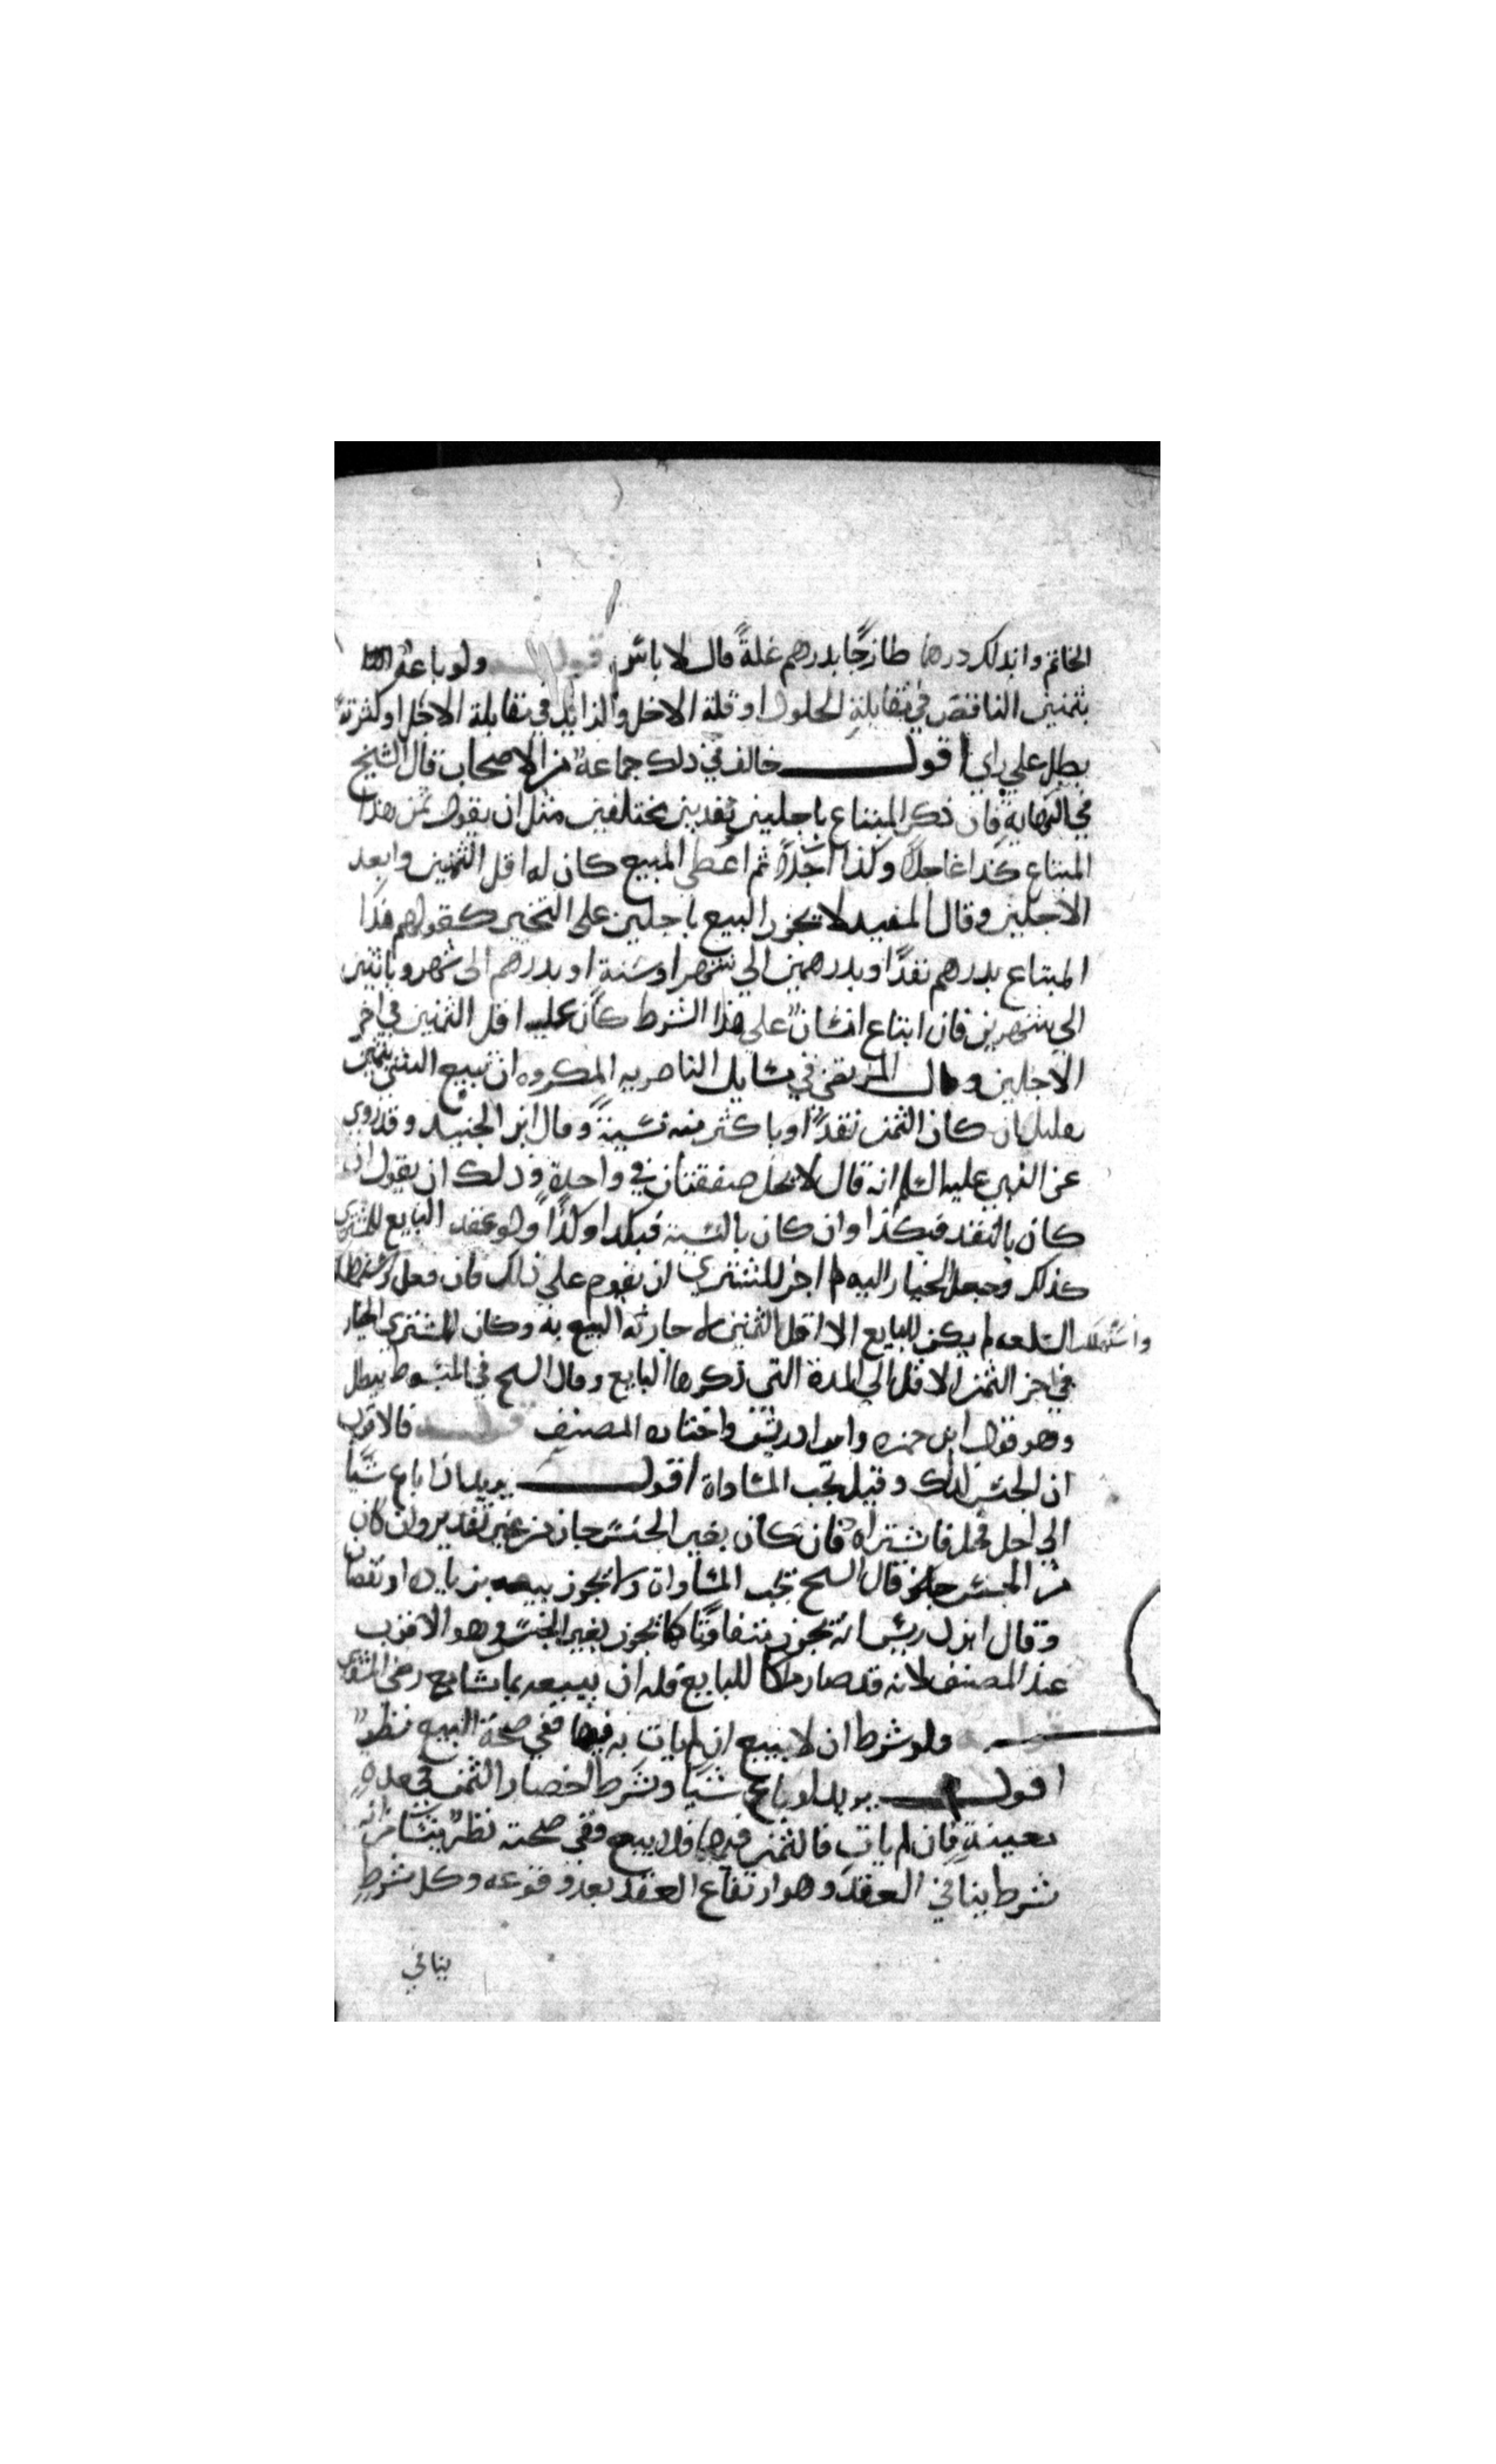 الخاتم وابدلك درهما طازجًا بدرهم غلةً قال لا باس قوله ولو باعه
بثمنين الناقص في مقابلة الحلول او قلة الاجل والزايد في مقابلة الاجل او كثرته
بطل علي راي اقول خالف في ذلك جماعة من الاصحاب قال الشيخ
في النهاية فان ذكر المبتاع باجلين نقدين مختلفين مثل ان يقول ثمن هذا
المبتاع كذا عاجلاً وكذا اجلاً ثم اعطي المبيع كان له اقل الثمنين وابعد
الاجلين وقال المفيد لا يجوز البيع باجلين على التخير كقولهم هذا
المبتاع بدرهم نقدًا وبدرهمين الي شهر او سنة او بدرهم الى شهر وباثنين
الي شهرين فان ابتاع انسان علي هذا الشرط كان عليه اقل الثمنين في اخر
الاجلين وقال المرتضى في مسايل الناصريه المكروه ان تبيع الشي بثمنين
بقليل ان كان الثمن نقدًا وباكثر منه نسيئةً وقال ابن الجنيد وقد روي
عن النبي عليه السلم انه قال لا يحل صفقتان في واحدة وذلك ان يقول ان
كان بالنقد فبكذا وان كان بالنسية فبكذا وكذا ولو عقد البايع للمشتري
كذلك وجعل الخيار اليه لم اجز للمشتري ان يقوم علي ذلك فان فعل
واستهلكت السلعه لم يكن للبايع الا اقل الثمنين لاجازته البيع به وكان للمشتري الخيار
في اخر الثمن الاقل الي المدة التي ذكرها البايع وقال السح في المبسوط يبطل
وهو قول ابن حمزه وابن ادريس واختاره المصنف قوله فالاقرب
ان الجنس كذلك وقيل تجب المساواة اقول يريد اذا باع شيا
الي اجل فحل فاشتراه فان كان بغير الجنس جاز من غير تقدير وان كان
من الجنس جاز قال السح تجب المساواة ولا تجوز بيعه بزياده او نقصان
وقال ابن ادريس انه يجوز متفاوتًا كما تجوز بغير الجنس وهو الاقرب
عند المصنف لانه قد صار ملكا للبايع فله ان يبيعه بما شا مع رضى المشتري
ولو شرط ان لا يبيع ان لم يات به فيها ففي صحة البيع نظر
اقول يريد لو باع شيًا وشرط احضار الثمن في مدةٍ
معينةٍ فان لم يات فالثمن فيها فلا بيع ففي صحته نظرٌ ينشا من انه
شرط ينافي العقد وهو ارتفاع العقد بعد وقوعه وكل شرطٍ
ينافي